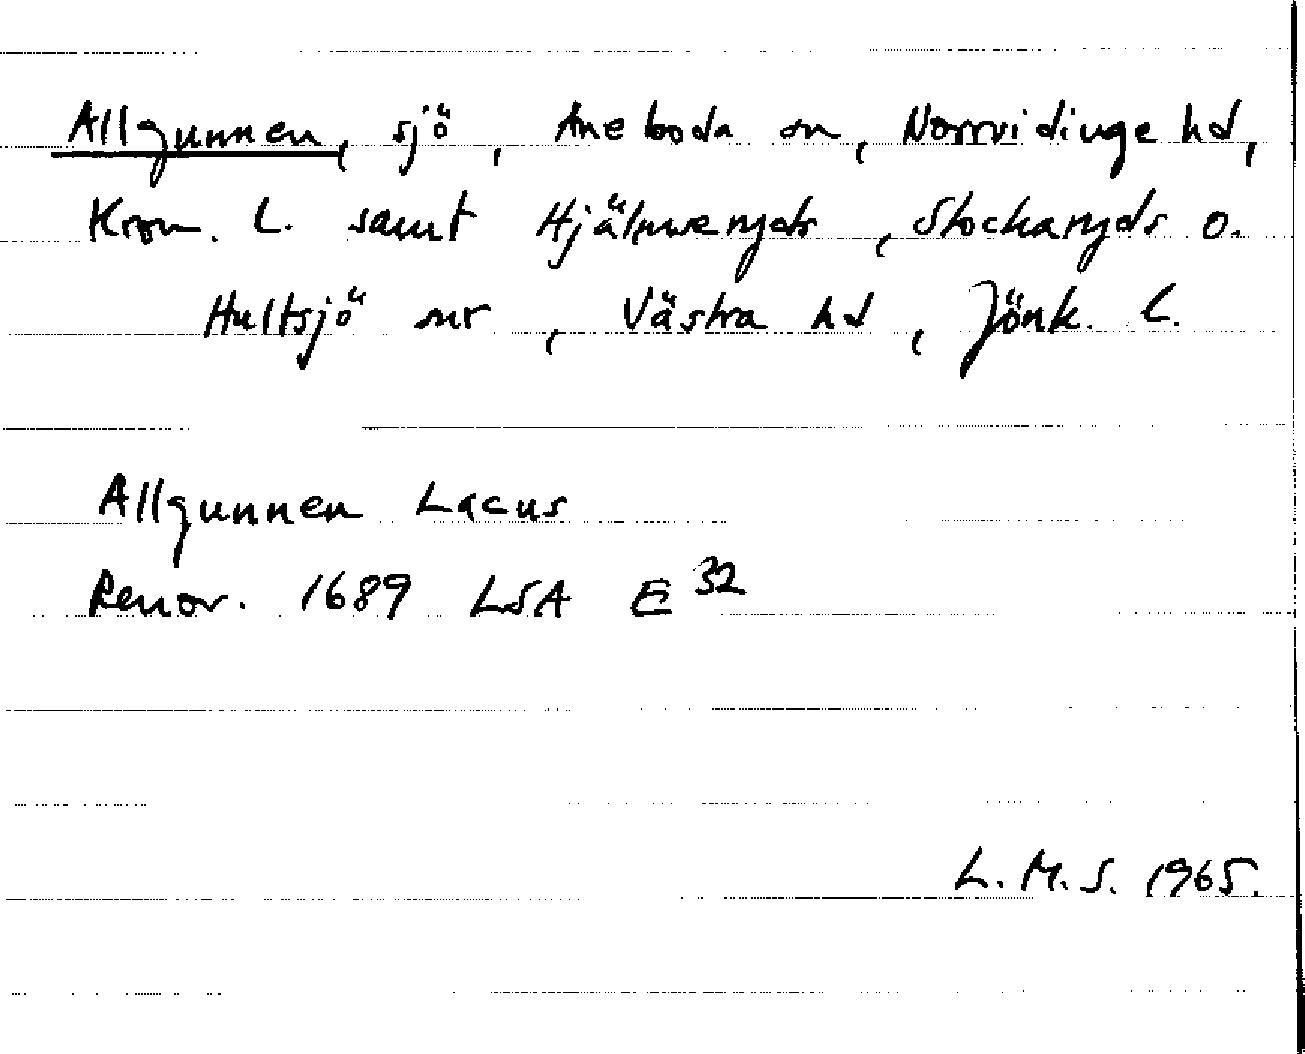 Allgunnen, sjö, Aneboda sn, Norrvidinge hd,
Kron. L. samt Hjälmseryds, Stockaryds o.
Hultsjö snr, Västra hd, Jönk. L.
Allgunnen Lacus
Renov. 1689 LSA E 32
L.M.S. 1965.